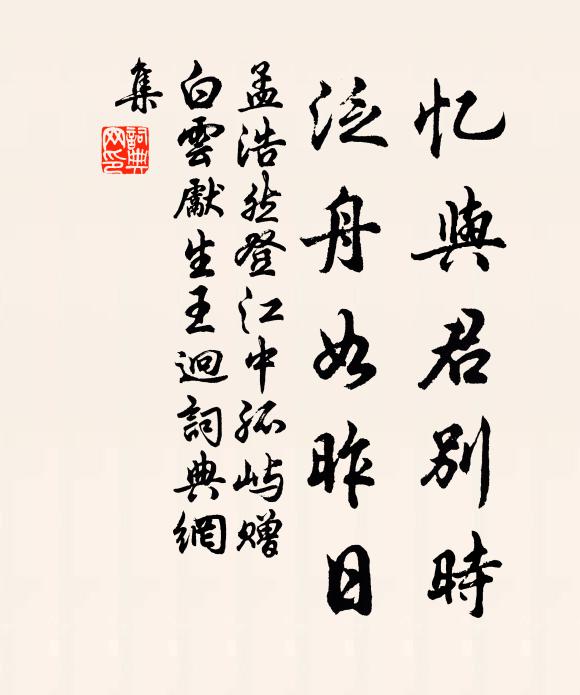 忆與君别時
泛舟如昨日
孟浩然登江中孤屿赠
白雲獻生王迥詞典網
集
詞典
网印